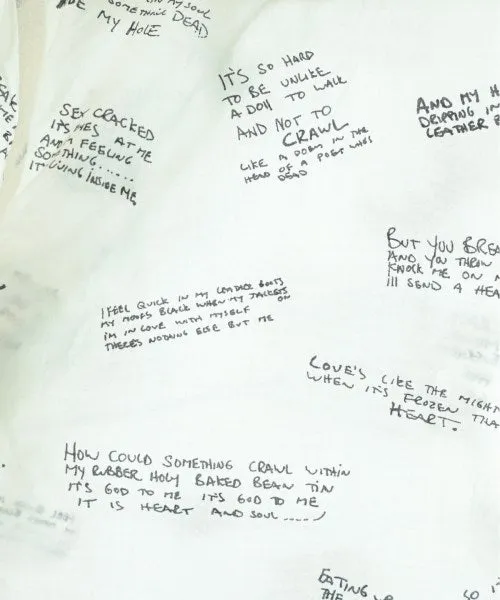 MY SOUL
SOMETHING DEAD
MY HOLE
IT'S SO HARD
TO BE UNLIKE
A DOLL TO WALK
AND NOT TO
CRAWL
LIKE A POEM IN THE
HEAD OF A POET WHO'S
DEAD
SEX CRACKED
ITS YES AT ME
AND A FEELING
SOMETHING......
IT LIVING INSIDE ME
AND MY H
DRIPPING IN
LEATHER B
BUT YOU BREA
AND YOU THROW
KNOCK ME ON M
I'll SEND A HEA
I FEEL QUICK IN MY LEATHER BOOTS
MY MOODS BLACK WHEN MY JACKETS ON
I'M IN LOVE WITH MYSELF
THERE'S NOTHING ELSE BUT ME
LOVE'S LIKE THE MIGHT
WHEN IT'S FROZEN THA
HEART.
HOW COULD SOMETHING CRAWL WITHIN
MY RUBBER HOLY BAKED BEAN TIN
IT'S GOD TO ME IT'S GOD TO ME
IT IS HEART AND SOUL .....
EATING
THE
SO I